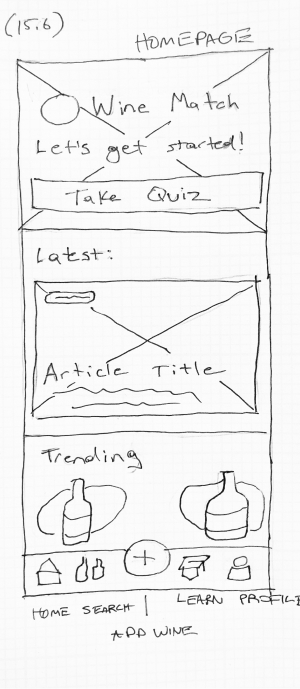 (15.6)
HOMEPAGE
Wine Match
Let's get started!
Take Quiz
Latest:
Article Title
Trending
+
HOME SEARCH | LEARN PROFILE
ADD WINE